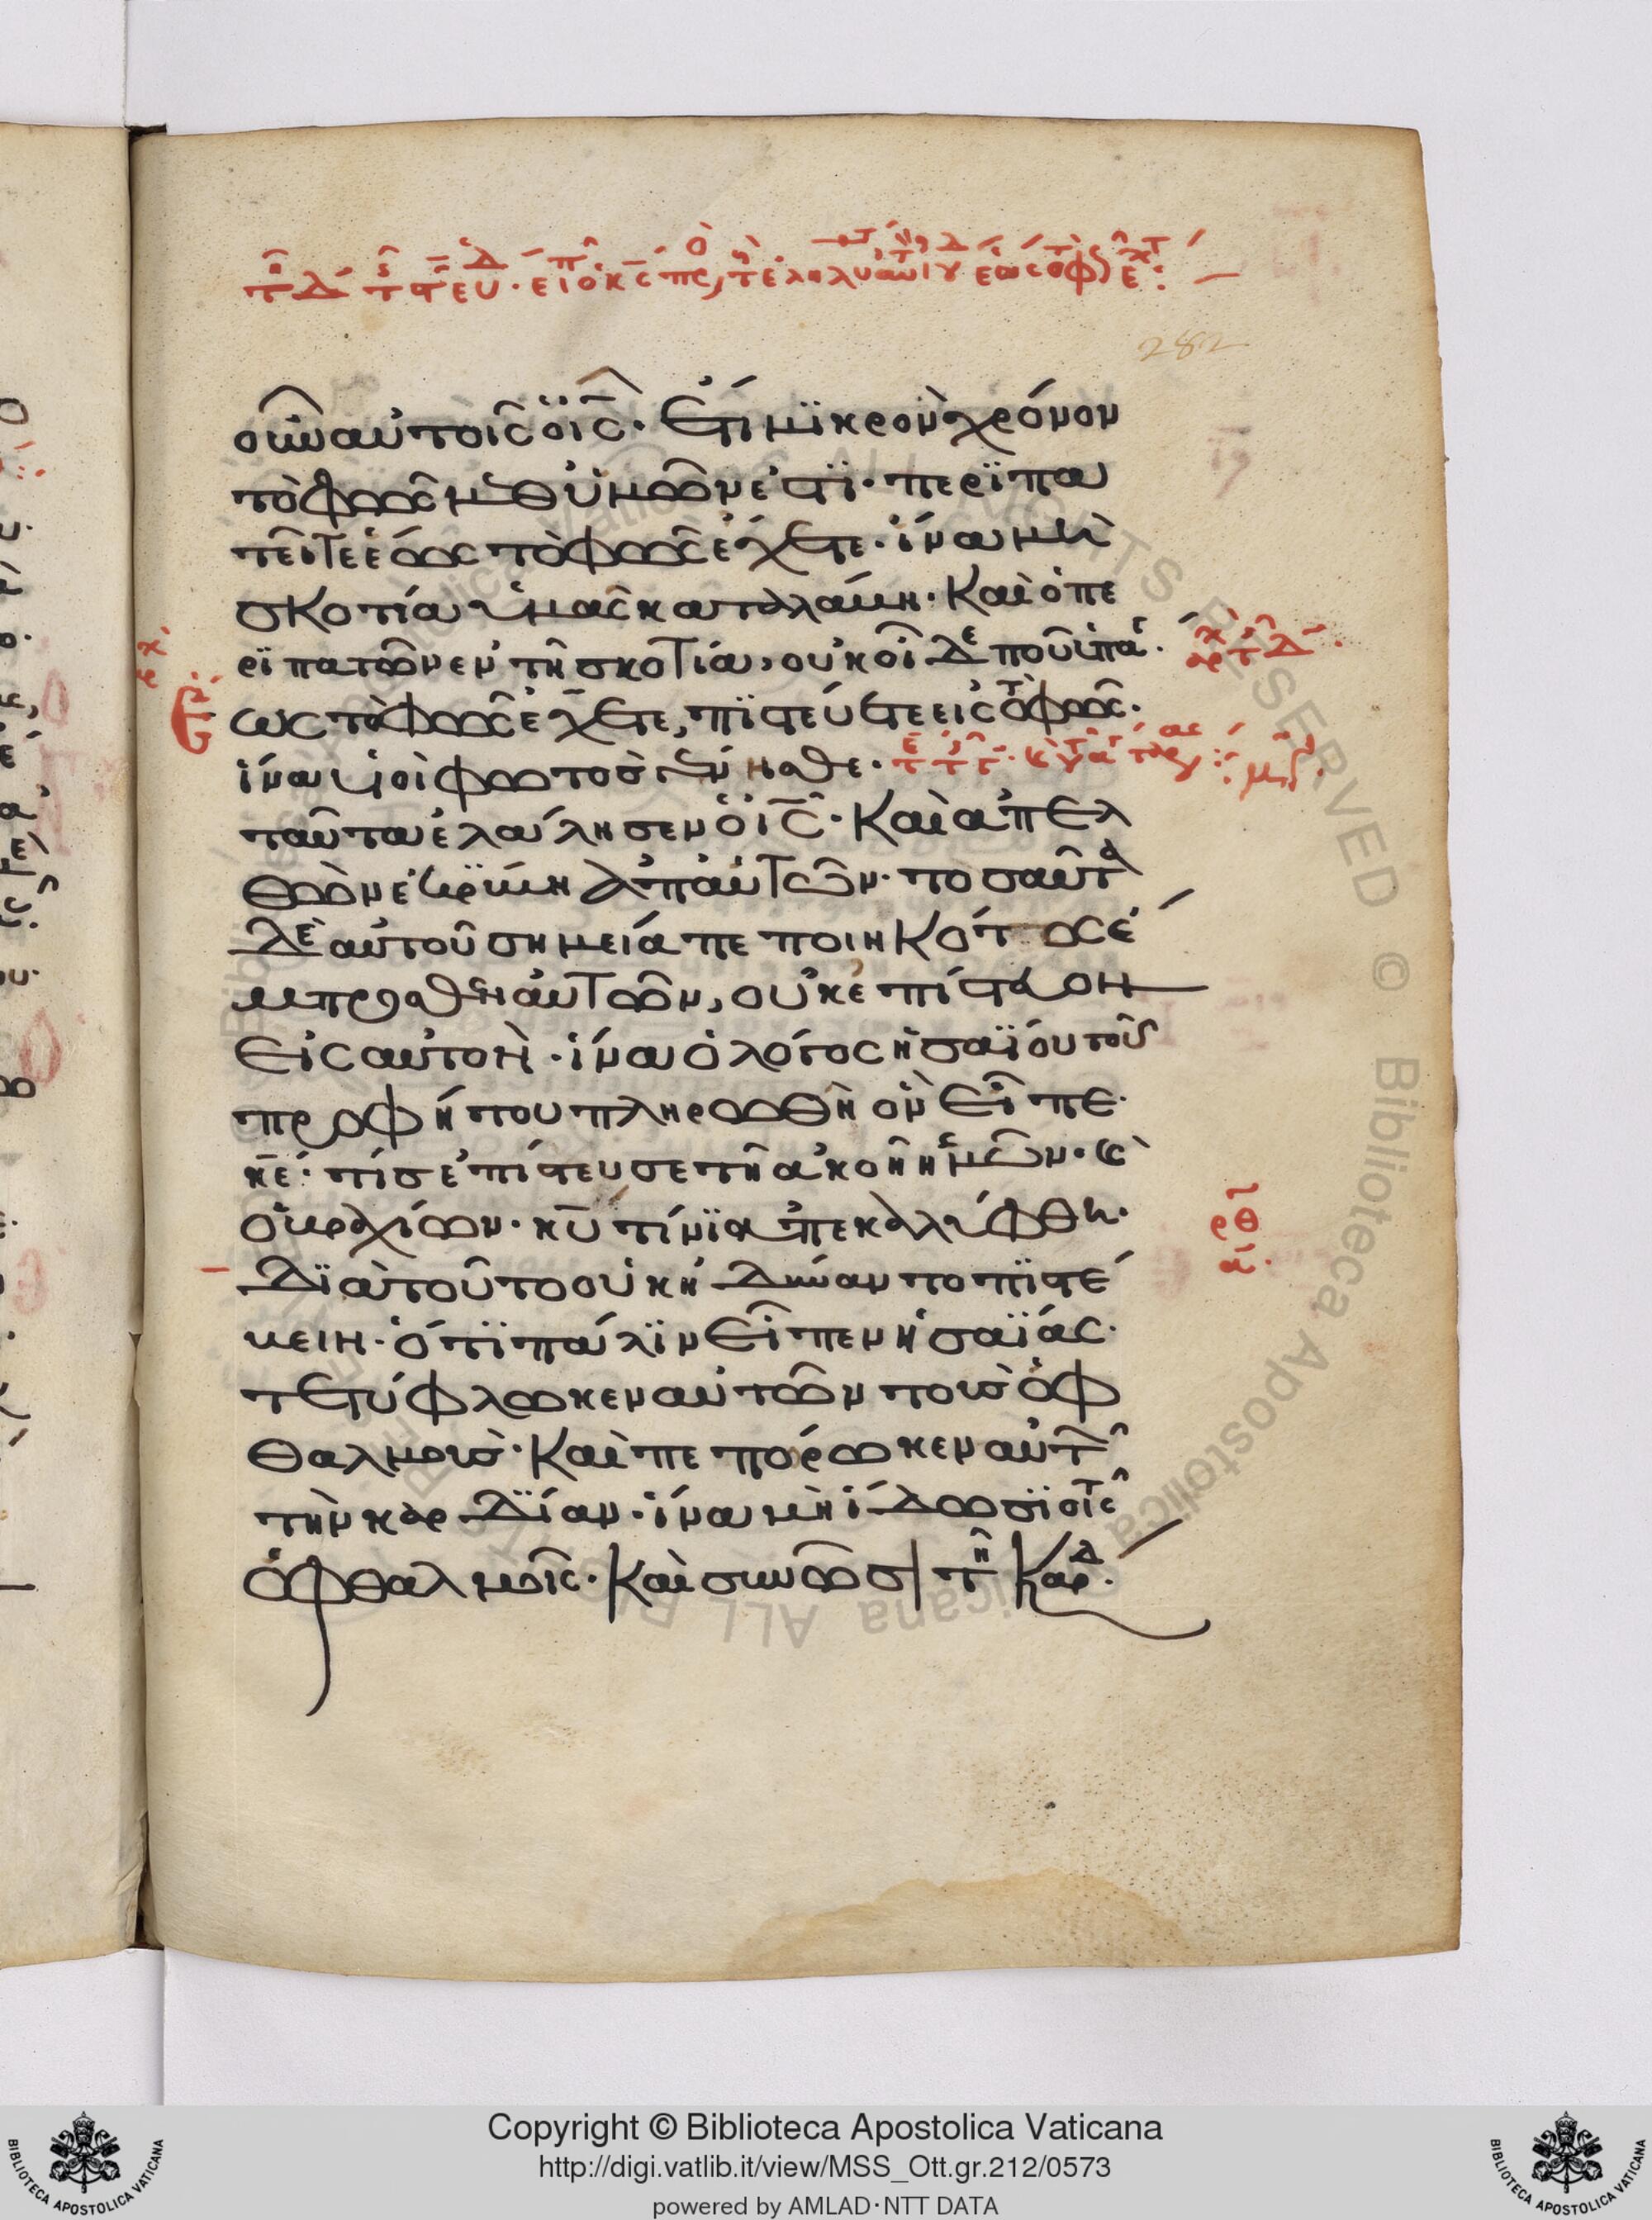 282
οὖν αὐτοῖς ὁ ις̅· Ἔτι μϊκρὸν χρόνον
τὸ φῶς μεθ ὑμῶν ἐστϊ· περϊπα
τεῖτε ἕως τὸ φῶς ἔχετε· ἵνα μὴ
σκοτία ὑμᾶς καταλάβη· Καὶ ὁ πε
ρϊπατῶν ἐν τῆ σκοτία, οὐκ οἶδε ποῦ ὑπά·
ως τὸ φῶς ἔχετε, πϊστεύετε εἰς τὸ φῶς·
ἵνα υἱοὶ φωτὸς γένησθε·
ταῦτα ἐλάλησεν ὁ ις̅· Καὶ ἀπελ
θὼν ἐκρύβη ἀπ αὐτῶν· τοσαῦτα
δὲ αὐτοῦ σημεία πεποιηκότος ἔ
μπροσθεν αὐτῶν, οὐκ ἐπίστευον
εἰς αὐτον· ἵνα ὁ λόγος ἡσαΐου τοῦ
προφήτου πληρωθῆ ὃν εἶπε·
κε̅· τίς ἐπίστευσε τῆ ἀκοῆ ἡμῶν· κὶ
ὁ βραχίων· κυ̅ τίνϊ ἀπεκαλύφθη·
Δϊατοῦτο οὐκ ἠδύναντο πϊστέ
υειν· ὅτϊ πάλϊν εἶπεν ἡσαΐας·
τετύφλωκεν αὐτῶν τοὺς ὀφ
θαλμοὺς· Καὶ πεπόρωκεν αὐτ
τὴν καρδΐαν· ἵνα μὴ ἴδωσϊ τοῖς
ὀφθαλμοῖς· Καὶ συνῶσι τῆ καρδ·
Copyright © Biblioteca Apostolica Vaticana
http://digi.vatlib.it/view/MSS_Ott.gr.212/0573
powered by AMLAD·NTT DATA
BIBLIOTECA APOSTOLICA VATICANA
BIBLIOTECA APOSTOLICA VATICANA